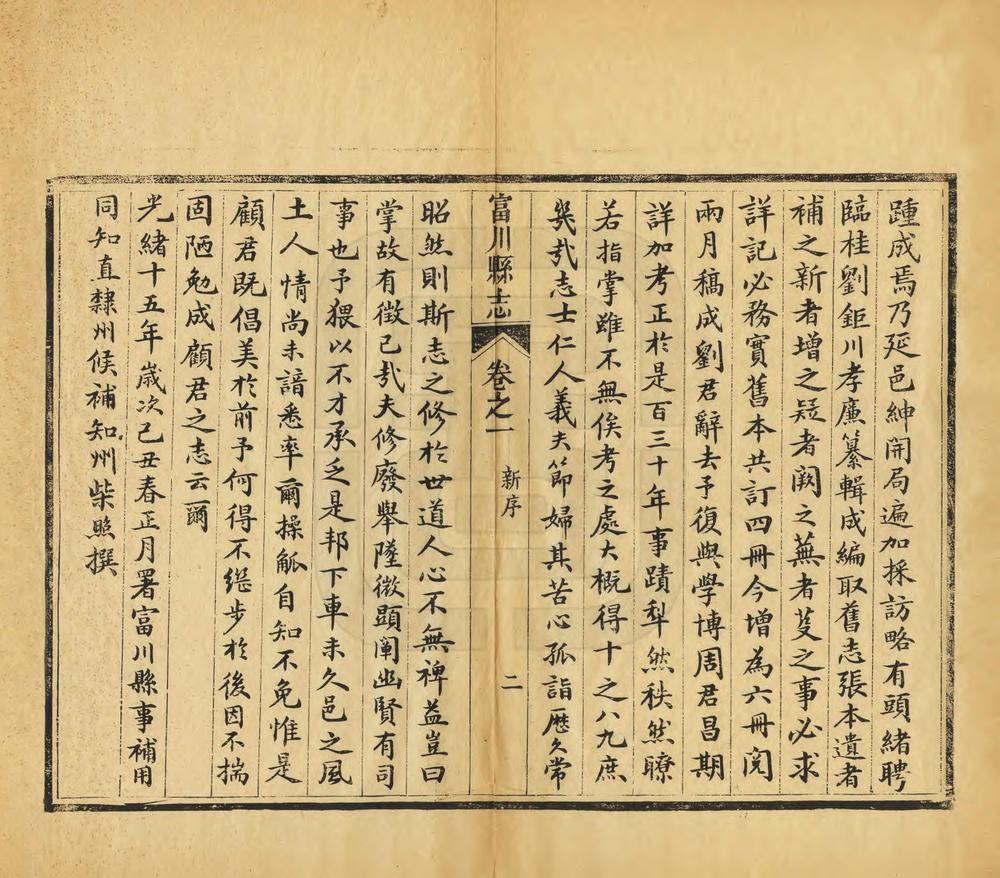 踵成焉乃延邑紳開局遍加採訪略有頭緒聘
臨桂劉鉅川孝廉纂輯成編取舊志張本遺者
補之新者增之疑者闕之蕪者芟之事必求
詳記必務實舊本共訂四冊今增為六冊閱
兩月稿成劉君辭去予復與學博周君昌期
詳加考正於是百三十年事蹟犁然秩然瞭
若指掌雖不無俟考之處大概得十之八九庶
幾哉志士仁人義夫節婦其苦心孤詣歷久常
富川縣志 卷之一 新序 二
昭然則斯志之修於世道人心不無裨益豈曰
掌故有徵已哉夫修廢舉墜微顯闡幽賢有司
事也予猥以不才承乏是邦下車未久邑之風
土人情尚未諳悉率爾操觚自知不免惟是
顧君既倡美於前予何得不繼步於後因不揣
固陋勉成顧君之志云爾
光緒十五年歲次己丑春正月署富川縣事補用
同知直隸州候補知州柴照撰